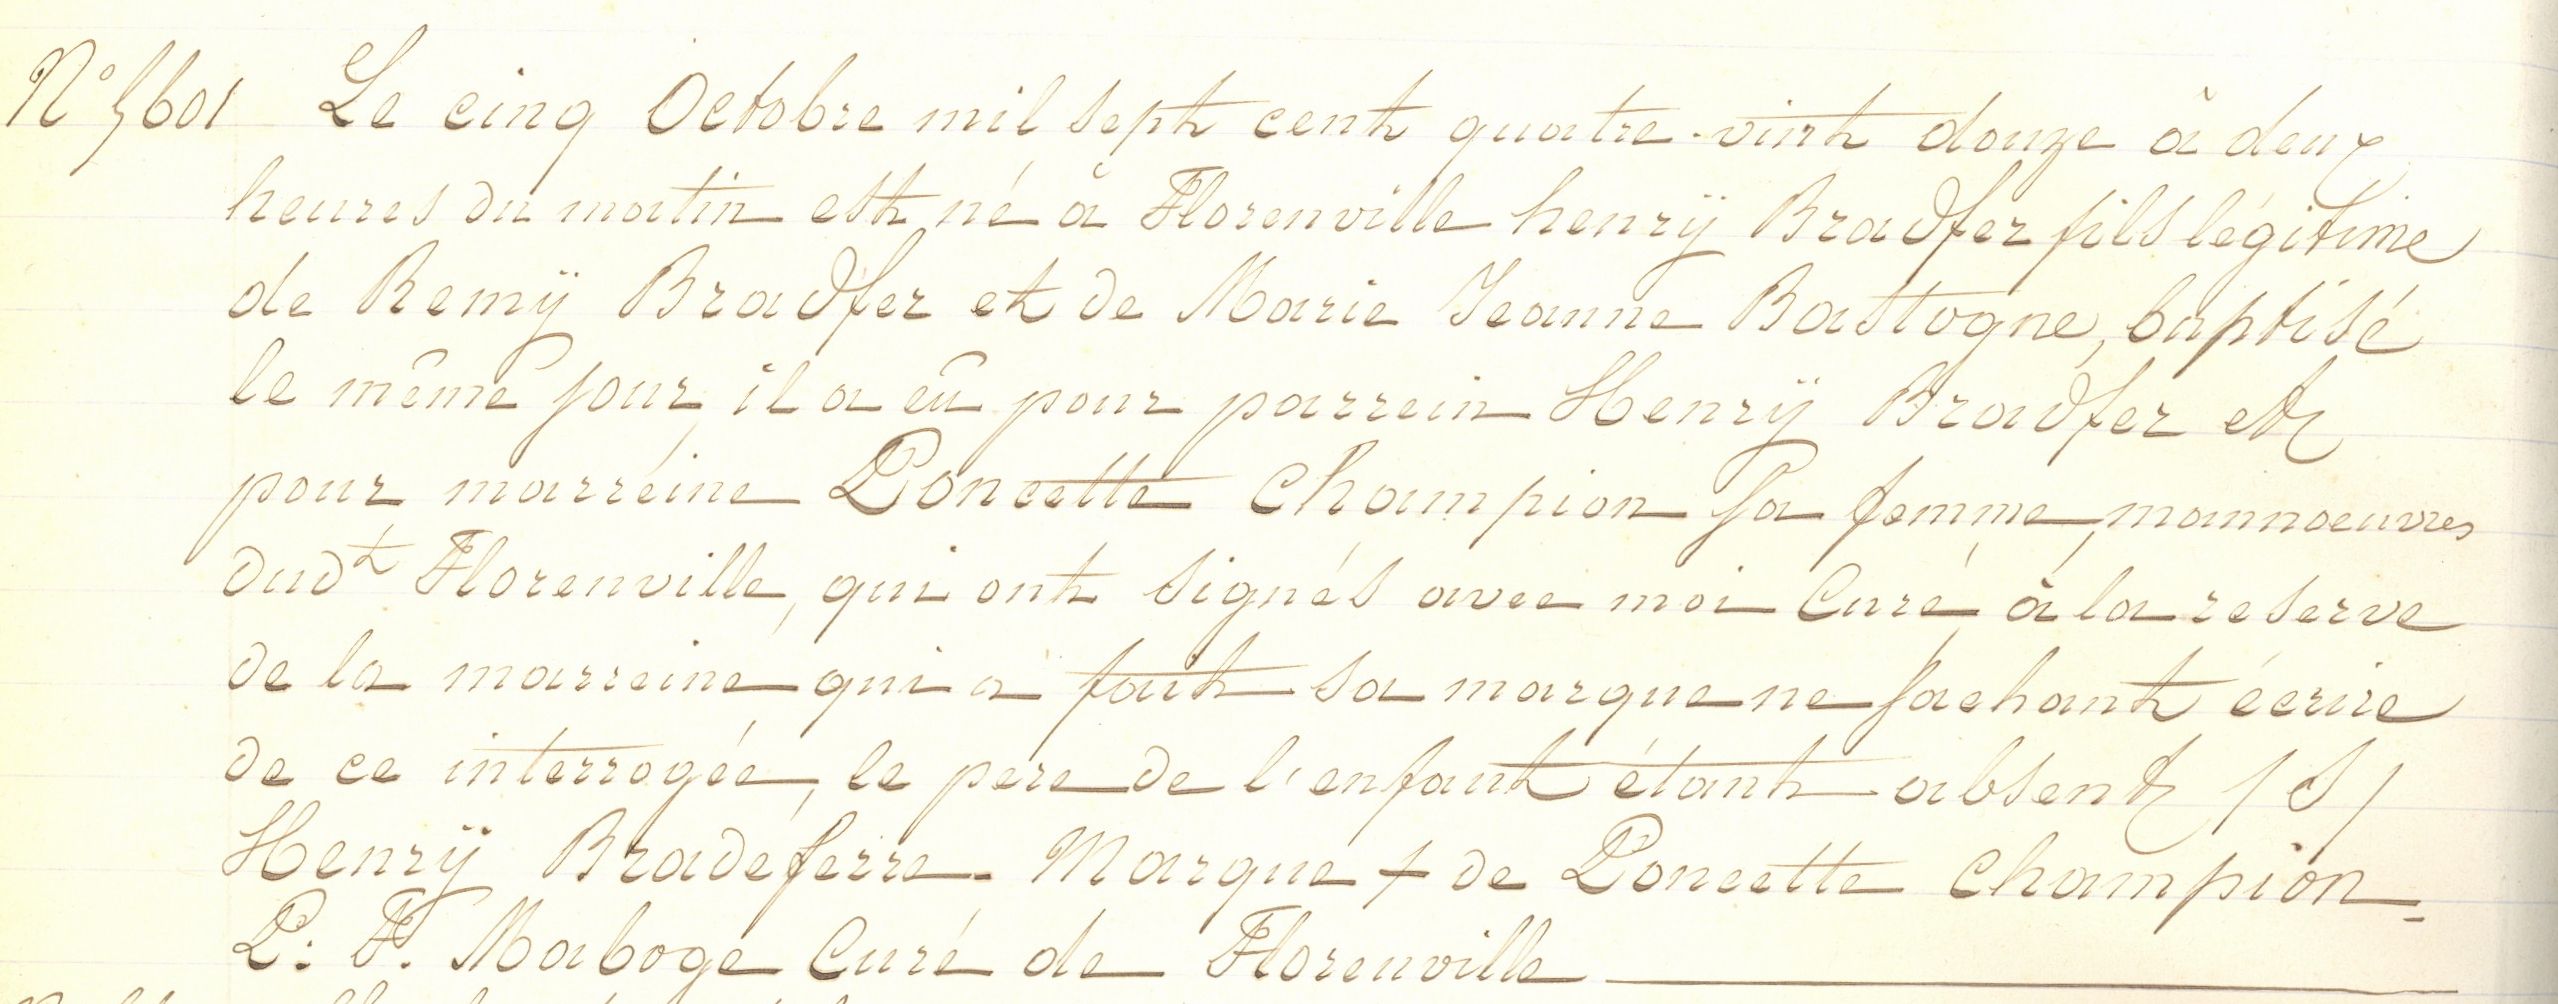 N° 5601 Le cinq Octobre mil sept cent quatre-vint douze à deux
heures du matin est né à Florenville henrÿ Bradfer fils légitime
de Remÿ Bradfer et de Marie Jeanne Bastogne, baptisé
le même jour, il a eû pour parrein Henrÿ Bradfer et
pour marréine Poncette Champion sa femme, mannoeuvres
dudt Florenville, qui ont signés avec moi Curé, à la reserve
de la marreine qui a fait sa marque ne sachant écrire
de ce interrogée, le pere de l'enfant étant absent (S)
Henrÿ Bradeferre. Marque + de Poncette Champion =
P: F. Maboge Curé de Florenville